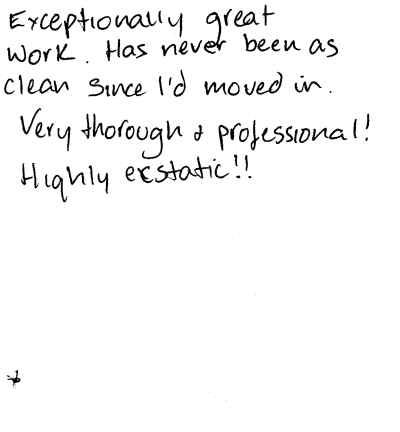 Exceptionally great
work. Has never been as
clean since I'd moved in.
Very thorough & professional!
Highly exstatic!!